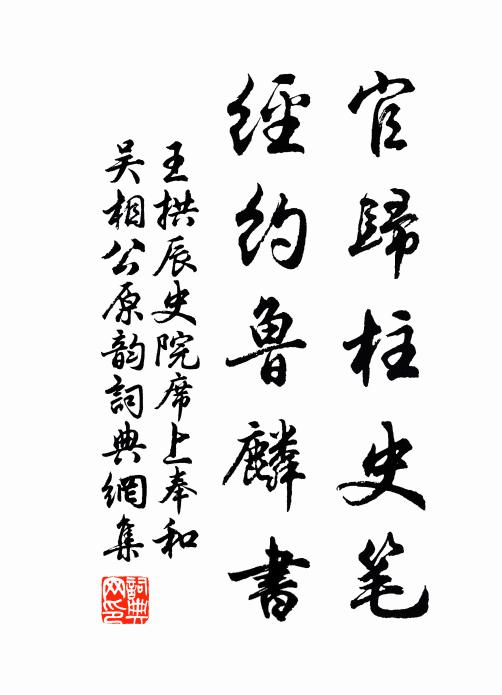 官歸柱史笔
經約魯麟書
王拱辰史院席上奉和
吴相公原韵詞典網集
詞典网印